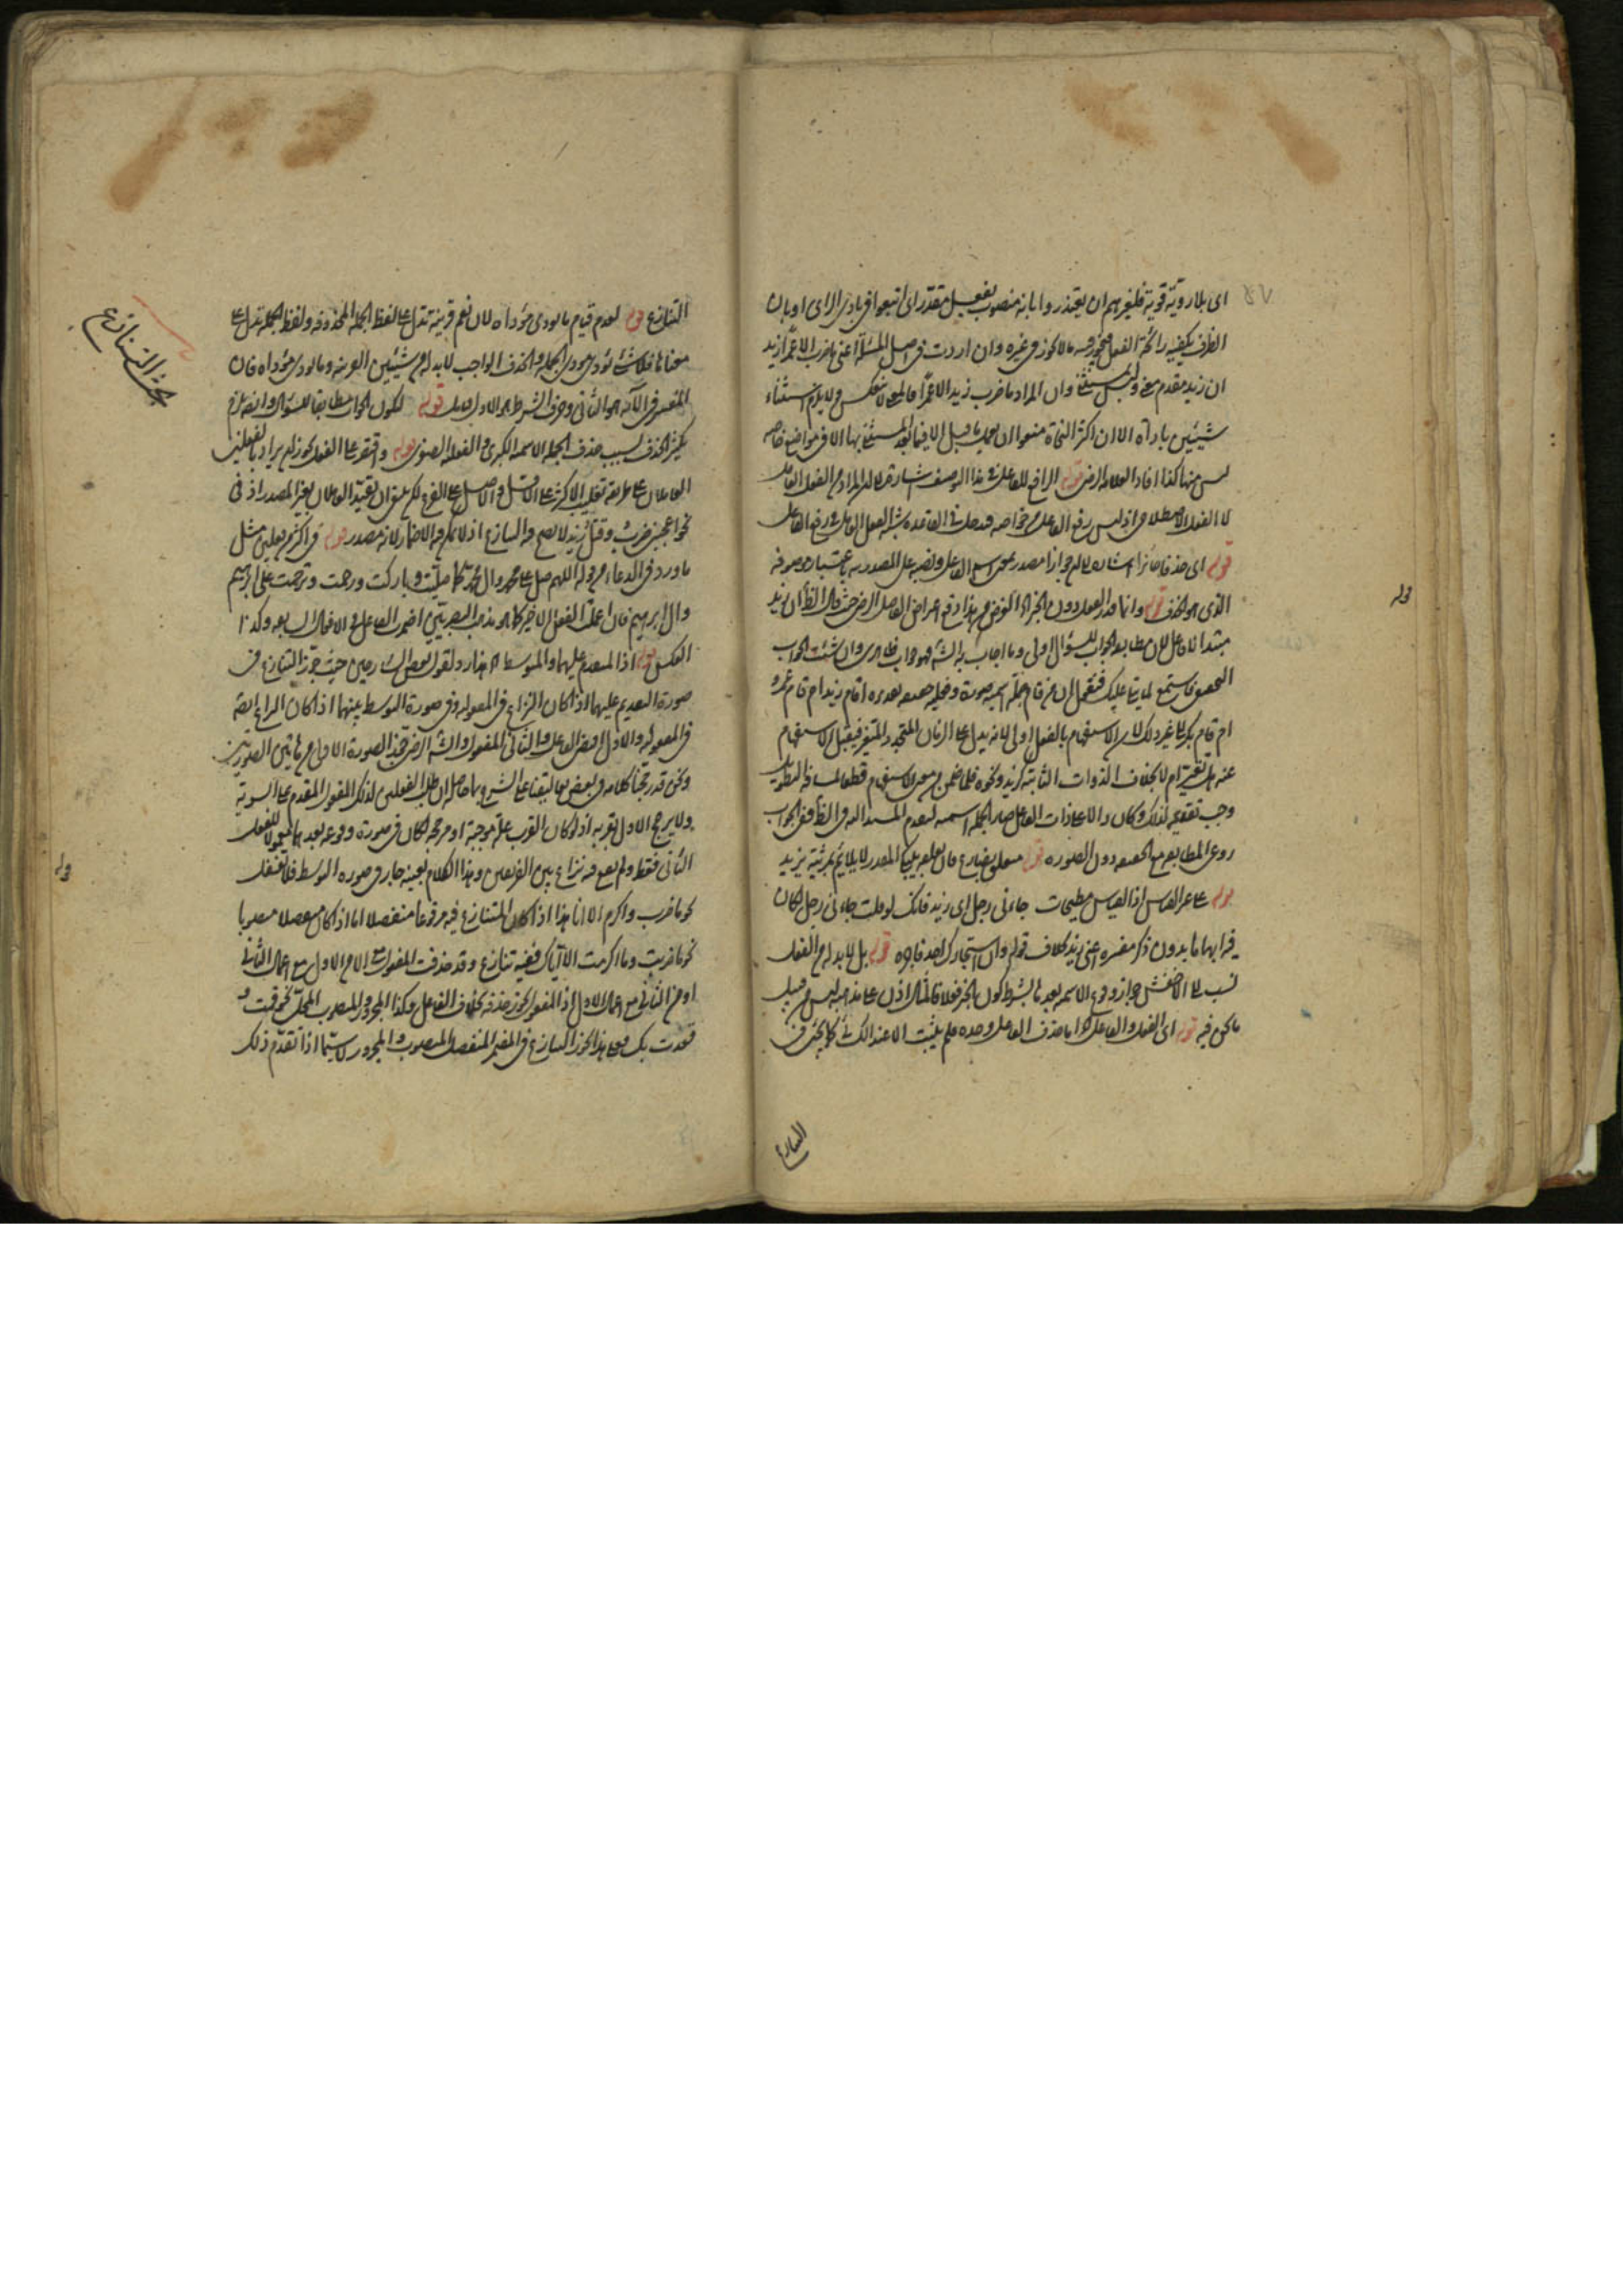 اى بلا روية قوية فلغيرهم ان يعتذروا بانه منصوب بفعل مقدر اى اتبعوا فى بادى الراى او بان
الظرف يكفيه رائحة الفعل فيجوز فيه ما لا يجوز فى غيره وان اردت فى اصل المسئلة اعنى ما ضرب الا عمرا زيد
ان زيد مقدم وان المراد ما ضرب زيد الا عمرا فالمعنى لا ينعكس ولا يلزم استثناء
شيئين باداة الا ان اكثر النحاة منعوا ان يعمل ما قبل الا فيما بعد المستثنى بها الا فى مواضع خاصه
ليس منها كذا افاد العلامه الرضى قوله الرافع للفاعل فى هذا الوصف اشارة الى ان المراد من الفعل العامل
لا الفعل الاصطلاحى اذ ليس رفع الفاعل من خواصه فدخل فى القاعدة شبه الفعل العامل فى رفع الفاعل
قوله اى حذفا جائزا اشاره الى ان جوازا مصدر بمعنى اسم الفاعل ونصبه على المصدرية باعتبار موصوفه
الذى هو الحذف قوله وانما قدر الفعل دون الخبر الغرض من هذا دفع اعتراض الفاضل الرضى حيث قال الظ ان زيد
مبتدا لا فاعل لان مطابقة الجواب للسؤال اولى وما اجاب به الشه فهو جواب ظاهرى وان شئت الجواب
التحقيقى فاستمع لما يتلى عليك فنقول ان من قام جملة اسمية صورة وفعلية حقيقة تقديره اقام زيد ام قام عمرو
ام قام بكر الى غير ذلك لان الاستفهام بالفعل اولى لانه يدل على الزمان المتجدد المتغير فيقبل الاستفهام
عنه هل تغير ام لا بخلاف الذوات الثابته كزيد ونحوه فلما ضمن من معنى الاستفهام قطعا لمسافة التطويل
وجب تقديمه لذلك وكان دالا على ذات الفاعل صار الجملة اسمية لتقدم المسند اليه فى الظ ففى الجواب
روعى المطابقة مع الحقيقة دون الصورة قوله متعلق بضارع فان تعلقه بيبك المقدر لا يلايم مرثية يزيد
قوله على غير القياس اذ القياس مطيحات جاءنى رجل اى زيد فانك لو قلت جاءنى رجل لكان
فيه ابهاما بدون ذكر مفسره اعنى زيد بخلاف قوله وان استجارك احد فاجره قوله بل لا بد له من الفعل
نسب الى الاخفش جواز وقوع الاسمية بعدها بشرط كون الخبر فعلا فالمثال اذن على مذهبه ليس من قبيل
ما نحن فيه قوله اى الفعل والفاعل اما حذف الفاعل وحده فلم يثبت الا عند الكسائى كما يجئ فى
التنازع
التنازع قوله لعدم قيام ما يؤدى مؤداه لان نعم قرينة تدل على لفظ الجملة المحذوفة ولفظ الجملة تدل على
معناها فلا شئ يؤدى مؤدى الجملة والحذف الواجب لا بد له من شيئين القرينة وما يؤدى مؤداه فان
المفسر فى الآية هو الثانى وحرف الشرط هو الاول قوله لكون الجواب مطابقا للسؤال وان لزم
تكثير الحذف بسبب حذف الجملة الاسمية الكبرى والفعلية الصغرى قوله واقتصر على الفعل يجوز ان يراد بالفعلين
العاملان على طريقة تغليب الاكثر على الاقل والاصل على الفرع لكن ينبغى ان يقيد العاملان بغير المصدر اذ فى
نحو اعجبنى ضرب وقتل زيد لا يصح فيه التنازع اذ لا يمكن فيه الاضمار لانه مصدر قوله فى اكثر من فعلين مثل
ما ورد فى الدعاء من قوله اللهم صل على محمد وال محمد كما صليت وباركت ورحمت وترحمت على ابرهيم
وال ابرهيم فان اعملت الفعل الاخير كما هو مذهب البصريين اضمرت الفاعل فى الافعال السابقه وكذا
العكس قوله اذ المتقدم عليهما والمتوسط هذا رد لقول بعض الشارحين حيث جوز التنازع فى
صورة التقديم عليهما اذا كان النزاع فى المفعوليه وفى صورة التوسط بينهما اذا كان النزاع ايضا
فى المفعوليه والاول اقتضى الفاعل والثانى المفعول والشه الرضى جوز الصورة الاولى من هاتين الصورتين
ونحن قد رجحنا كلامه فى بعض تعاليقنا على الشرح وحاصله ان طلب الفعلين لذلك المفعول المقدم على السوية
ولا يرجح الاول بقربه اذ لو كان القرب علة موجبة او مرجحة لكان فى صورة وقوعه بعدهما معمولا للفعل
الثانى فقط ولم يقع فيه نزاع بين الفريقين وهذا الكلام بعينه جار فى صورة التوسط فلا تغفل
نحو ما ضرب واكرم الا انا هذا اذا كان المتنازع فيه مرفوعا منفصلا اما اذا كان منفصلا منصوبا
نحو ما ضربت وما اكرمت الا اياك ففيه تنازع وقد حذفت المفعول مع الا من الاول مع اعمال الثانى
او من الثانى مع اعمال الاول اذ المفعول يجوز حذفه بخلاف الفاعل وكذا المجرور المنصوب المحل نحو قمت و
قعدت بك فعلى هذا يجوز التنازع فى المضمر المنفصل المنصوب والمجرور لا سيما اذا تقدم ذلك
بحث التنازع